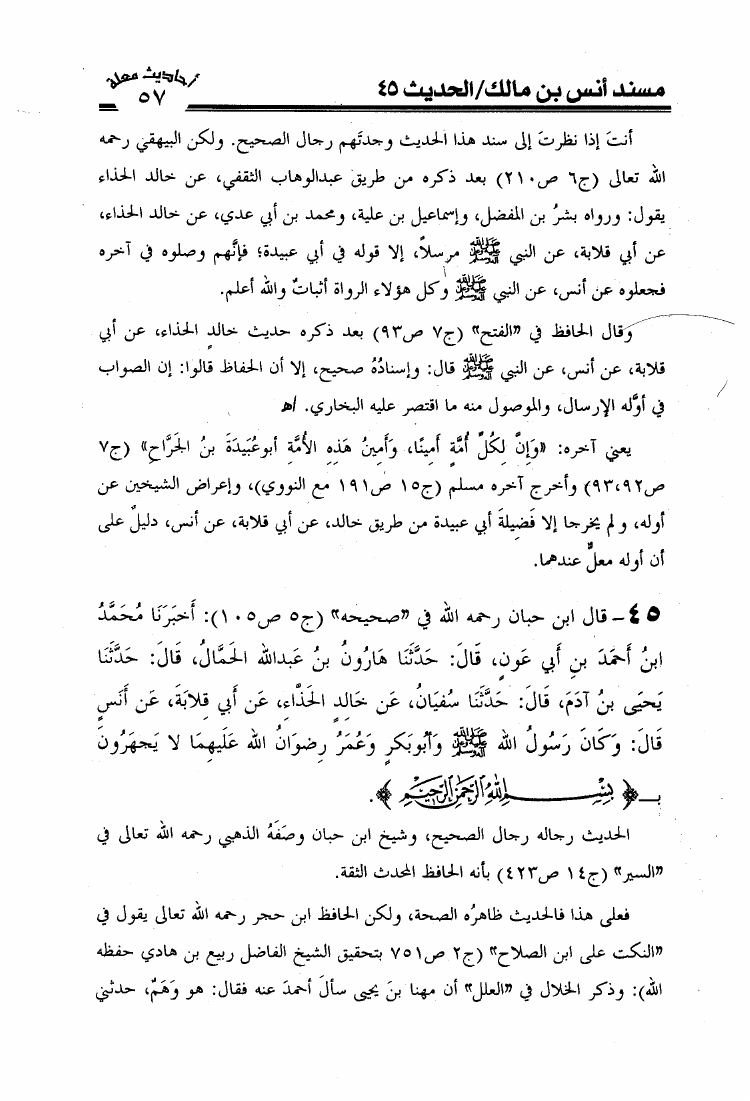 مسند أنس بن مالك/الحديث ٤٥
أحاديث معلة
٥٧
أنتَ إذا نظرتَ إلى سند هذا الحديث وجدتَهم رجال الصحيح. ولكن البيهقي رحمه
الله تعالى (ج٦ ص٢١٠) بعد ذكره من طريق عبدالوهاب الثقفي، عن خالد الحذاء
يقول: ورواه بشرُ بن المفضل، وإسماعيل بن علية، ومحمد بن أبي عدي، عن خالد الحذاء،
عن أبي قلابة، عن النبي ﷺ مرسلاً، إلا قوله في أبي عبيدة؛ فإنَّهم وصلوه في آخره
فجعلوه عن أنس، عن النبي ﷺ وكل هؤلاء الرواة أثباتٌ والله أعلم.
وقال الحافظ في «الفتح» (ج٧ ص٩٣) بعد ذكره حديث خالد الحذاء، عن أبي
قلابة، عن أنس، عن النبي ﷺ قال: وإسنادُهُ صحيح، إلا أن الحفاظ قالوا: إن الصواب
في أوَّله الإرسال، والموصول منه ما اقتصر عليه البخاري. اﻫ
يعني آخره: «وَإِنَّ لِكُلِّ أُمَّةٍ أَمِينًا، وَأَمِينُ هَذِهِ الأُمَّةِ أبوعُبَيدَةَ بنُ الجَرَّاحِ» (ج٧
ص٩٢،٩٣) وأخرج آخره مسلم (ج١٥ ص١٩١ مع النووي)، وإعراض الشيخين عن
أوله، ولم يخرجا إلا فَضِيلةَ أبي عبيدة من طريق خالد، عن أبي قلابة، عن أنس، دليلٌ على
أن أوله معلٌّ عندهما.
٤٥- قال ابن حبان رحمه الله في «صحيحه» (ج٥ ص١٠٥): أَخبَرَنَا مُحَمَّدُ
ابنُ أَحمَدَ بنِ أَبي عَونٍ، قَالَ: حَدَّثَنَا هَارُونُ بنُ عَبدالله الحَمَّالُ، قَالَ: حَدَّثَنَا
يَحيَى بنُ آدَمَ، قَالَ: حَدَّثَنَا سُفيَانُ، عَن خَالِدٍ الحَذَّاءِ، عَن أَبِي قِلابَةَ، عَن أَنَسٍ
قَالَ: وَكَانَ رَسُولُ الله ﷺ وَأَبُوبَكرٍ وَعُمَرُ رِضوَانُ الله عَلَيهِمَا لا يَجهَرُونَ
بـ﴿ بِسْمِ اللَّهِ الرَّحْمَنِ الرَّحِيمِ ﴾.
الحديث رجاله رجال الصحيح، وشيخ ابن حبان وصَفَهُ الذهبي رحمه الله تعالى في
«السير» (ج١٤ ص٤٢٣) بأنه الحافظ المحدث الثقة.
فعلى هذا فالحديث ظاهرُه الصحة، ولكن الحافظ ابن حجر رحمه الله تعالى يقول في
«النكت على ابن الصلاح» (ج٢ ص٧٥١ بتحقيق الشيخ الفاضل ربيع بن هادي حفظه
الله): وذكر الخلال في «العلل» أن مهنا بنَ يحيى سألَ أحمدَ عنه فقال: هو وَهَمٌ، حدثني